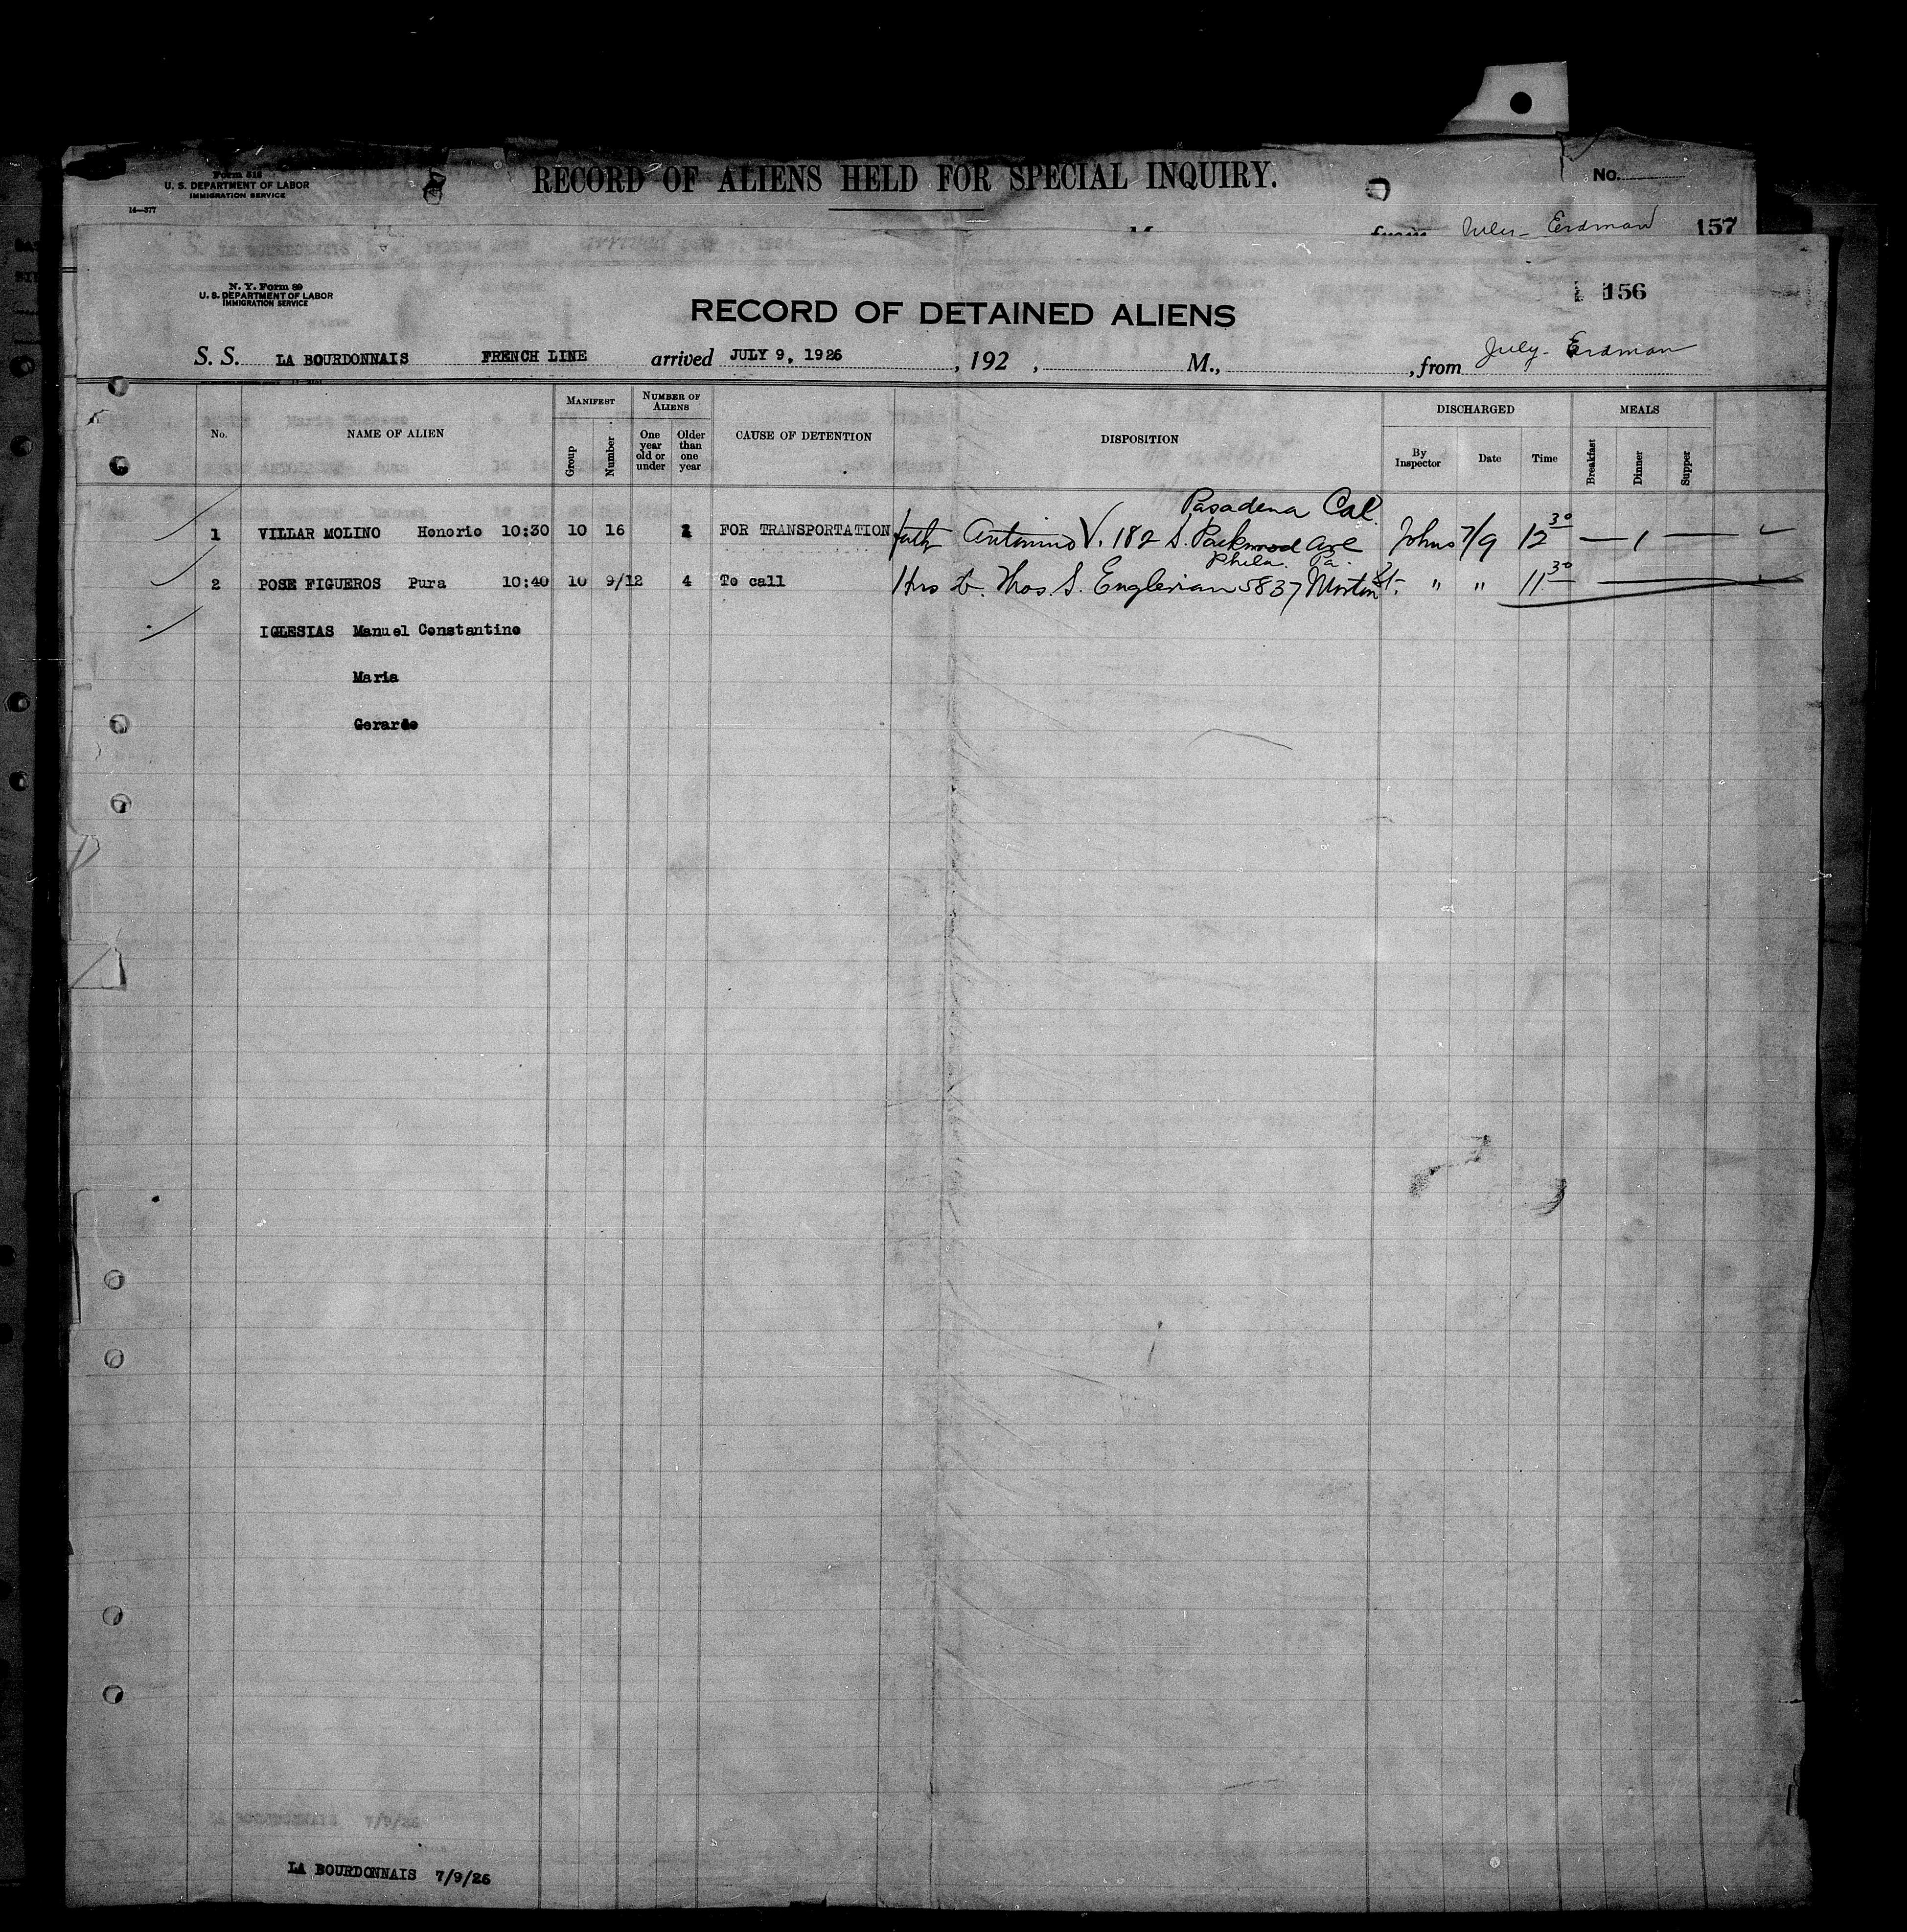 Form 518
U. S. DEPARTMENT OF LABOR
IMMIGRATION SERVICE
16—377
RECORD OF ALIENS HELD FOR SPECIAL INQUIRY.
No.
from July - Erdman 157
N. Y. Form 89
U. S. DEPARTMENT OF LABOR
IMMIGRATION SERVICE
156
RECORD OF DETAINED ALIENS
S. S. LA BOURDONNAIS FRENCH LINE arrived JULY 9, 1926, 192 , M., , from July - Erdman
No. NAME OF ALIEN MANIFEST Group Number NUMBER OF ALIENS One year old or under Older than one year CAUSE OF DETENTION DISPOSITION DISCHARGED By Inspector Date Time MEALS Breakfast Dinner Supper
Pasadena Cal.
1 VILLAR MOLINO Honorio 10:30 10 16 1 FOR TRANSPORTATION fath Antonino V. 182 S. Parkwood Ave Johns 7/9 12 30 — 1 —
Phila. Pa.
2 POSE FIGUEROS Pura 10:40 10 9/12 4 To call Thos. S. 5837 St. " " 11 30
IGLESIAS Manuel Constantino
Maria
Gerardo
LA BOURDONNAIS 7/9/26
LA BOURDONNAIS 7/9/26